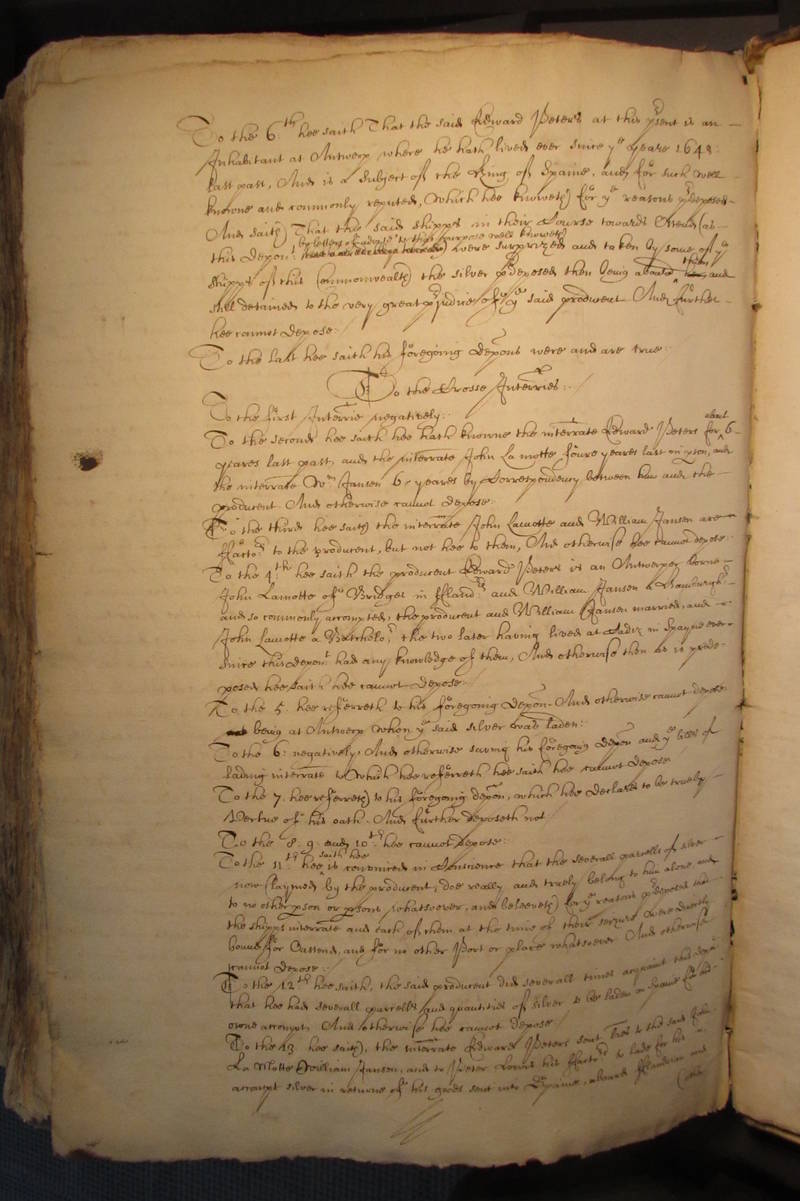 To the 6.th hee saith That the said Edward Peters at this p̱sent is an
Inhabitant at Antwerp where he hath lived ever since ye yeare 1648
last past, And is a subject of the King of Spaine, and for such well
knowne and commonly reputed, Which hee knoweth for ye reasons p̱deposed
And saith That the said shipps in their Course towards Ostend (as
by letters of advise to that purpose well knoweth
this depont) were surprized and taken by some of ye
then
shipps of this Commonwealth the silver p̱deposed then being aboard and
still detained to the very great p̱judice of ye said producent And further
hee cannot depose
To the last hee saith his foregoing depons were and are true
To the Crosse Interries:
To the first Interrie negatively:
about
To the second hee saith hee hath knowne the interrate Edward Peters for 6
yeares last past, and the interrate John La motte foure yeares last in p̱son, and
the interrate Wm Jansen 6 yeares by Correspondency between him and the
producent And otherwise cannot depose
To the third hee saith the interrate John Lamotte and William Jansen are
ffactors to the producent, but not hee to them, And otherwise hee cannot depose
To the 4.th hee saith the producent Edward Peters is an Antwerper borne
John Lamotte of Bridges in ffland.rs and William Jansen a Hamburgh
and so commonly accompted, the producent and William Jansen married, and
John Lamotte a Batchelor, the two later having lived at Cadiz in Spayne ever
since this depont had any knowledge of them, And otherwise then as is prede
posed hee saith hee cannot depose
To the 5. hee referreth to his foregoing depon And otherwise cannot depose
being at Antwerp when ye said silver was laden:
To the 6: negatively, And otherwise saving his foregoing depon and ye bills of
lading interrate to which hee referreth hee saith hee cannot depose
To the 7. hee referreth to his foregoing depon, which hee declares to be true by
vertue of his oath. And further deposeth not
To the 8. 9. and 10.th hee cannot depose:
saith hee
To the 11.th hee is convinced in Conscience that the severall parcells of silver
now claymed by the producent, doe really and truely belong to him alone and
to no other p̱son or p̱sons whatsoever, and beleeveth for ye reasons p̱deposed that
the shipps interrate and each of them at the time of their seizure were directly
bound for Oastend, and for no other Port or place whatsoever And otherwise
cannot depose
To the 12.th hee saith, the said producent did severall times acquaint this depont
that hee had severall parcells and quantities of silver to be laden in Spaine for his
owne accompt, And otherwise hee cannot depose
To the 13. hee saith, the interrate Edward Peters sent to the said John
La Motte William Jansen, and to Peter his ffactors to lade for his
accompt silver in returne of his goods sent into Spaine, aboard and
(other